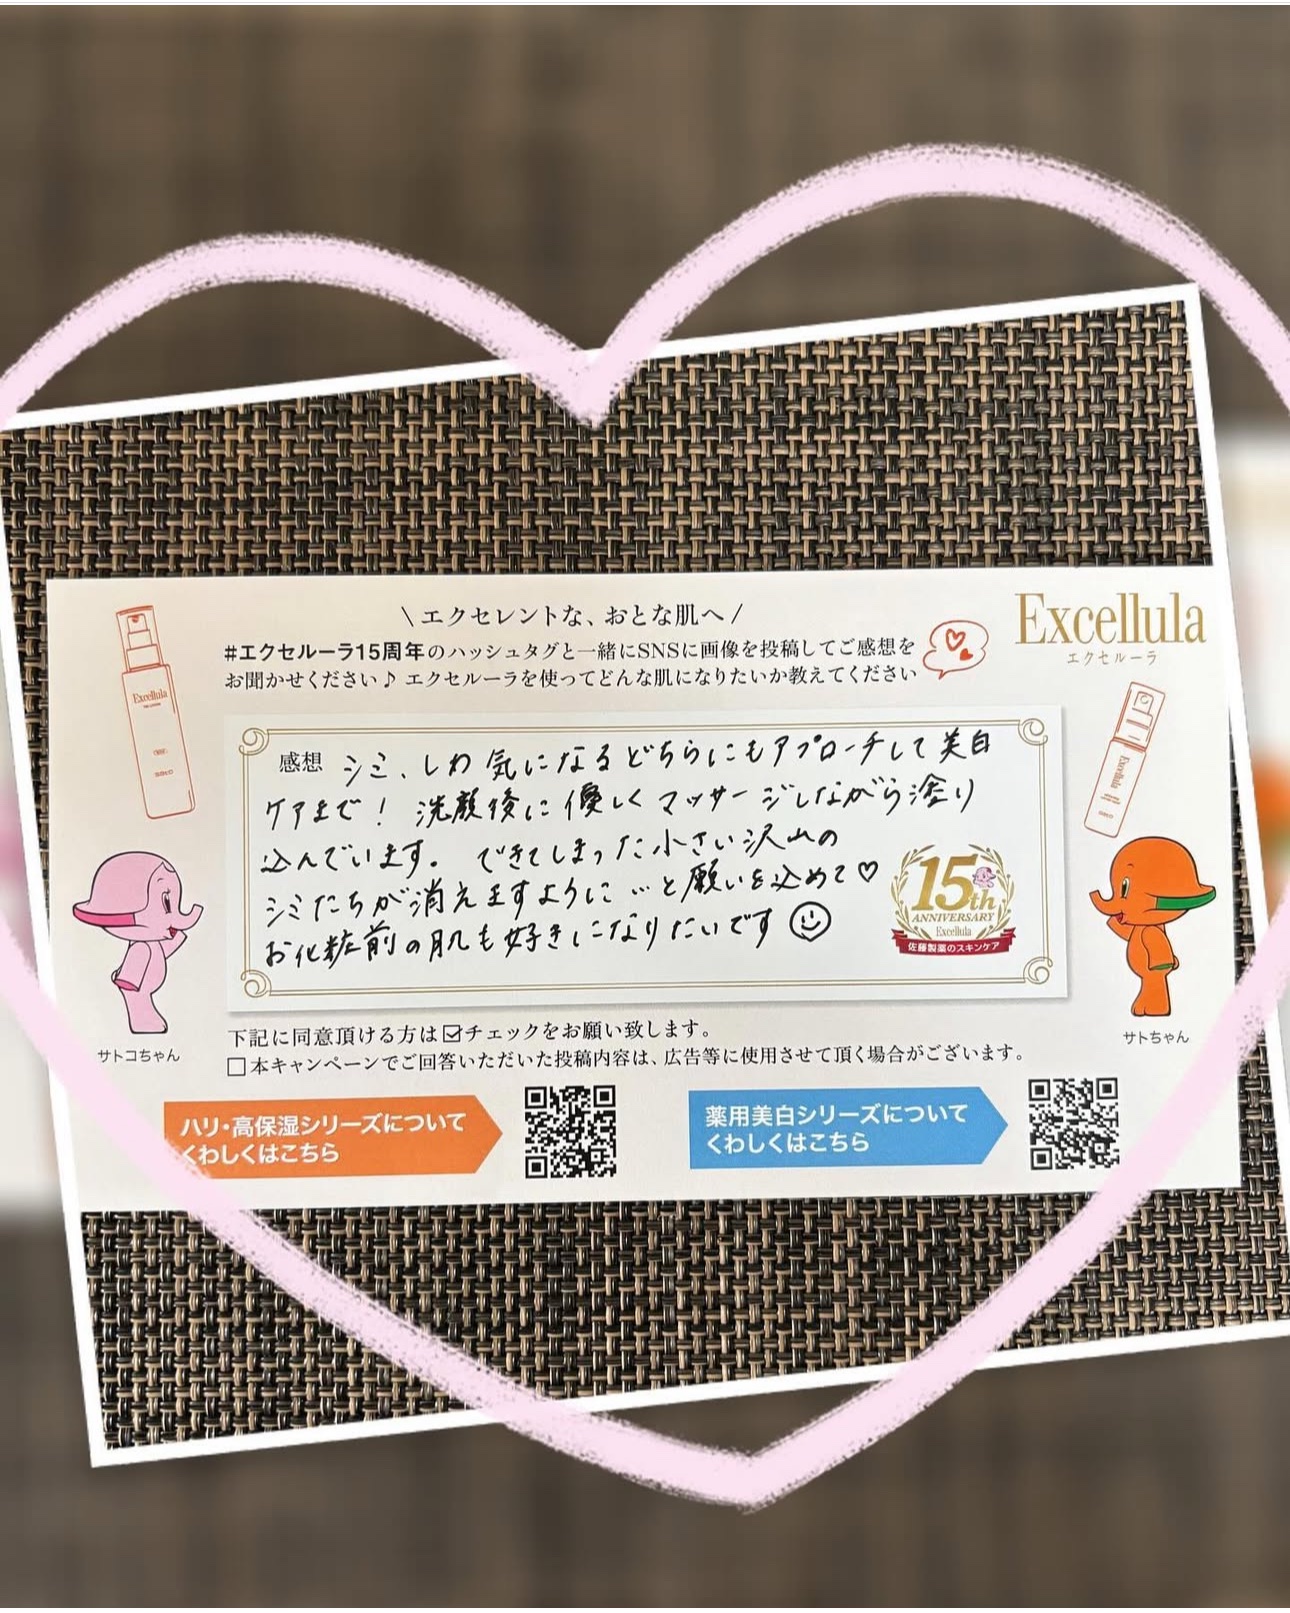 \ エクセレントな、おとな肌へ /
Excellula
エクセルーラ
#エクセルーラ15周年のハッシュタグと一緒にSNSに画像を投稿してご感想を
お聞かせください♪ エクセルーラを使ってどんな肌になりたいか教えてください
Excellula
Excellula
感想 シミ、しわ 気になるどちらにもアプローチして美白
ケアまで！ 洗顔後に優しくマッサージしながら塗り
込んでいます。 できてしまった小さい沢山の
シミたちが消えますように…と願いを込めて♡
お化粧前の肌も好きになりたいです☺
15th
ANNIVERSARY
Excellula
佐藤製薬のスキンケア
サトコちゃん
サトちゃん
下記に同意頂ける方は☑チェックをお願い致します。
□本キャンペーンでご回答いただいた投稿内容は、広告等に使用させて頂く場合がございます。
ハリ・高保湿シリーズについて
くわしくはこちら
薬用美白シリーズについて
くわしくはこちら